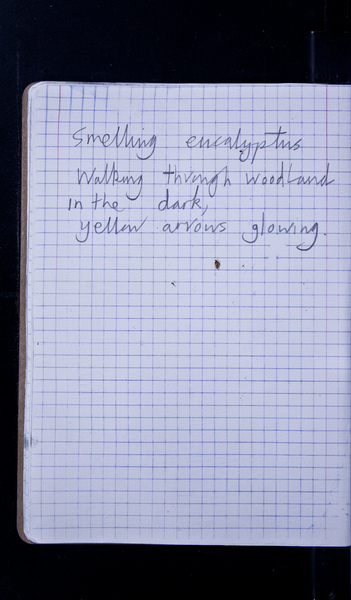 Smelling eucalyptus
Walking through woodland
in the dark,
yellow arrows glowing.